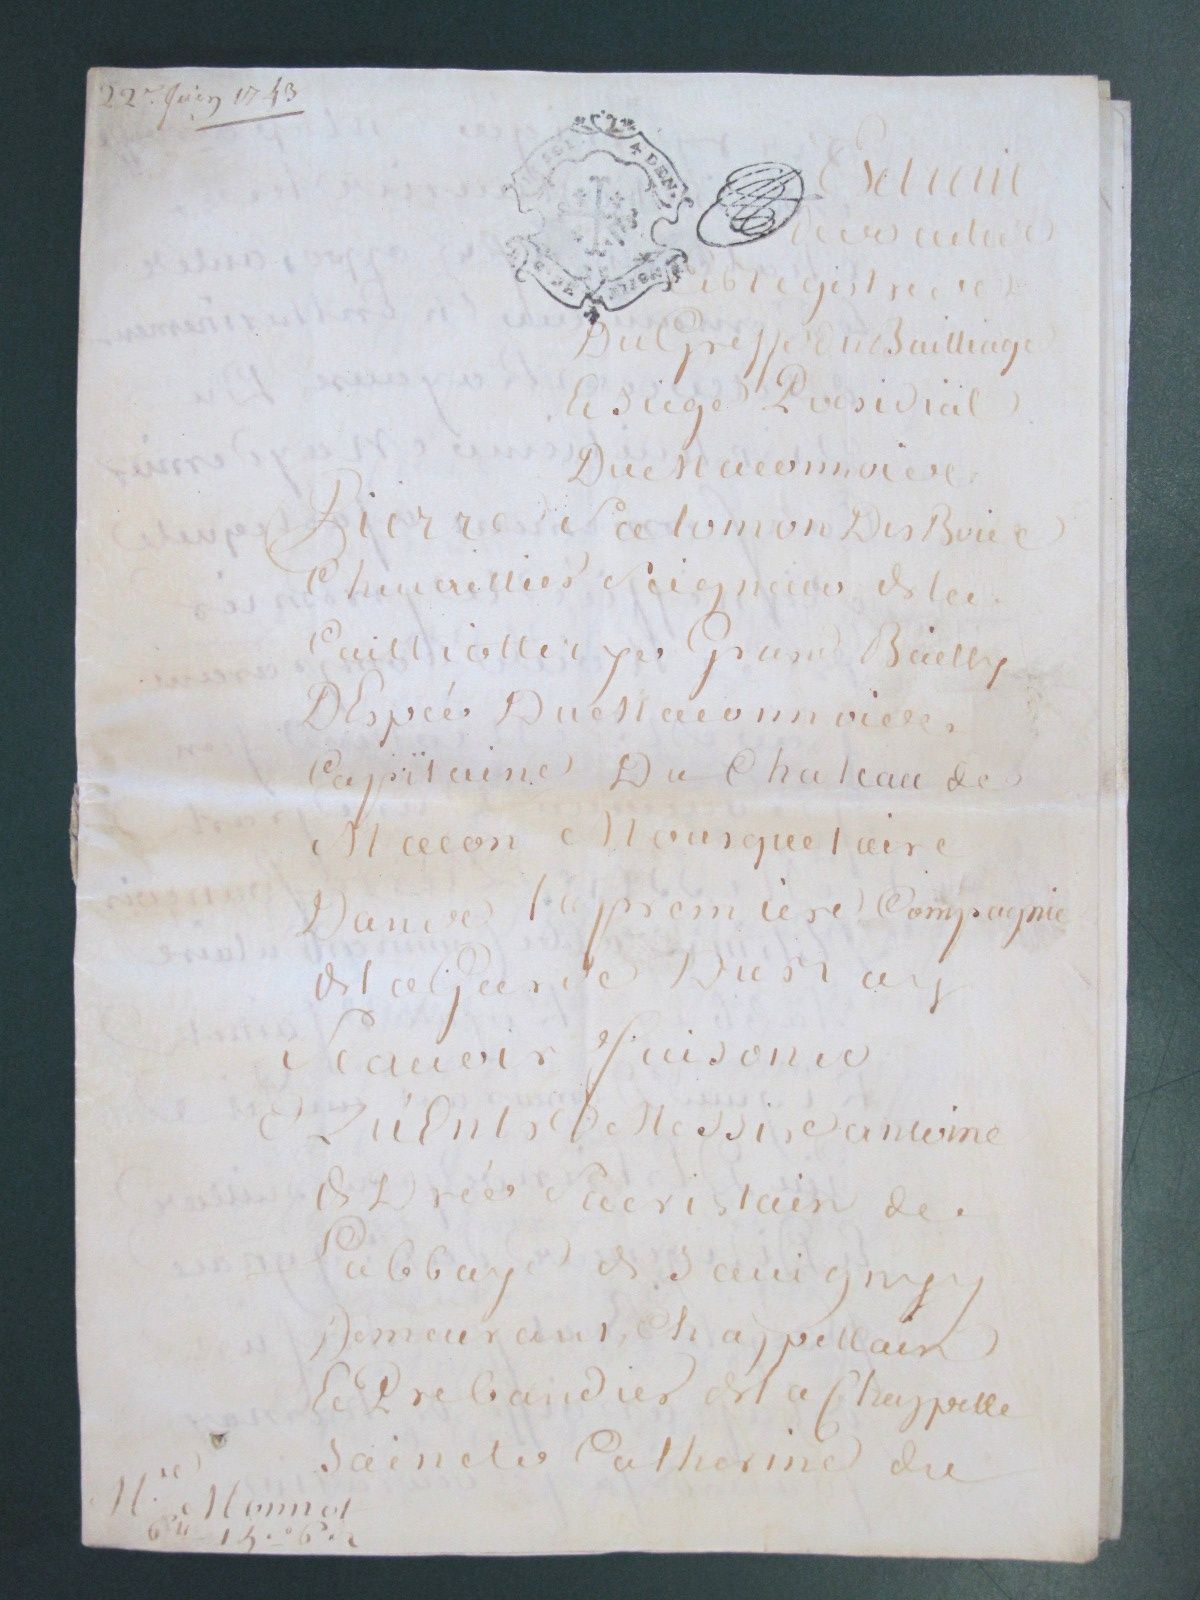 22e Juin 1743
4 DEN.
DIJON
Extrait
des actes
et Registres
Du Greffe du Bailliage
Et siege Presidial
Du Maconnois
Pierre Salomon Des Bois
Cheuaillier Seigneur de la
Cailliotterye Grand Bailly
DEspée Du Maconnois
Capitaine Du Chateau de
Macon Mousquetaire
Dans la premiere Compagnie
de la Garde Du Roy
Scauoir faisons
Qu'Entre Messire antoine
de Drée Sacristain de
Labbaye de Sauigny
Demeurant, Chappellain
Et Prebandier de la Chappelle
Saincte Catherine du
Me Monnot